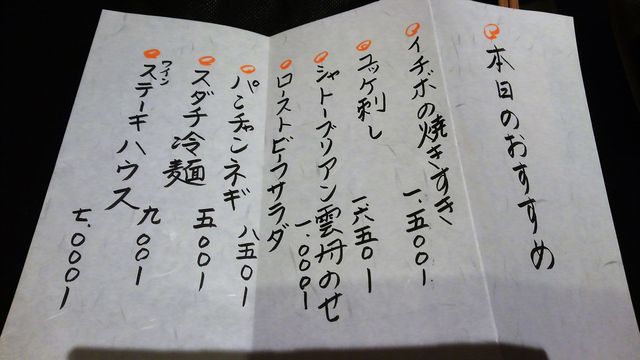 本日のおすすめ
イチボの焼きすき
一.五〇〇ー
ユッケ刺し
一六五〇ー
シャトーブリアン雲丹のせ
一.〇〇〇ー
ローストビーフサラダ
八五〇ー
パンチャンネギ
五〇〇ー
スダチ冷麺
九〇〇ー
ワイン
ステーキハウス
七.〇〇〇ー